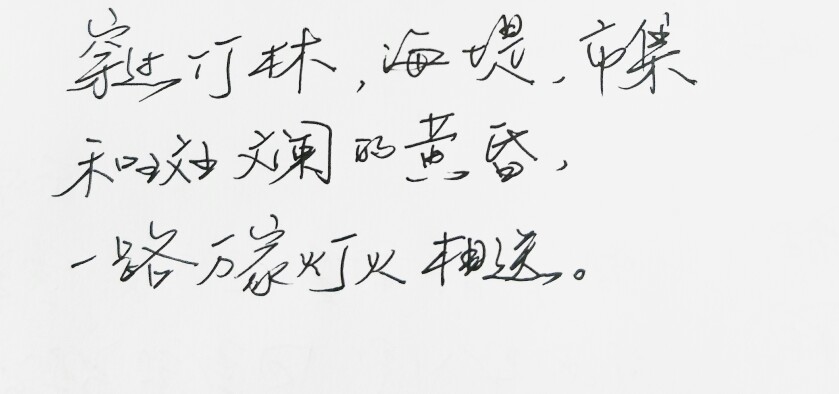 穿过丁林,海堤,市集
和斑斓的黄昏,
一路万家灯火相送。